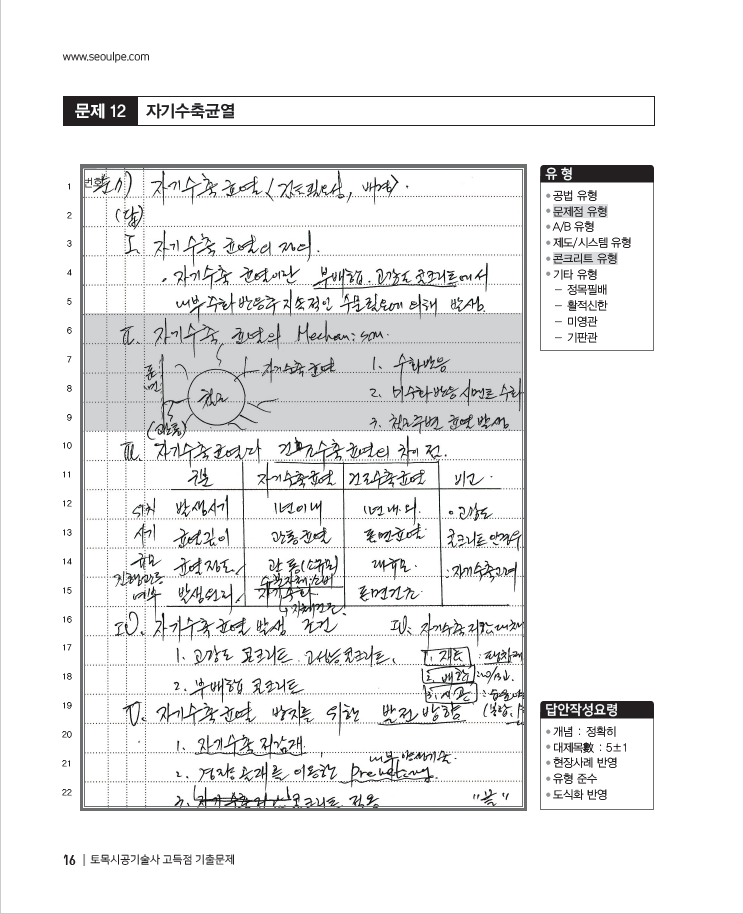 www.seoulpe.com
문제 12 자기수축균열
1 번호 문1) 자기수축균열〈검토필요성, 배경〉.
2 (답)
3 I. 자기수축 균열의 정의.
4 · 자기수축 균열이란 부배합. 고강도 콘크리트에서
5 내부 수화반응후 지속적인 수분필요에 의해 발생.
6 II. 자기수축 균열의 Mechanism.
7 표면 자기수축 균열 1. 수화반응
8 2. 미수화반응 시멘트 수화
9 (관통) 3. 주변 균열 발생
10 III. 자기수축균열과 건조수축균열의 차이점.
11 구분 자기수축균열 건조수축균열 비고
12 발생시기 1년이내 1년 내.외. · 고강도
13 시기 균열깊이 관통균열 표면균열
14 규모 균열정도, 관통(소규모) 대규모
15 발생원리, 자기수화 표면건조
16 IV. 자기수축균열 발생 조건
17 1. 고강도 콘크리트. 고성능콘크리트, 1. 재료
18 2. 부배합 콘크리트 2. 배합
19 V. 자기수축균열 방지를 위한 발전 방향
20 1. 자기수축 저감재
21 2. 경량골재를 이용한 Prewetting.
22 콘크리트 적용 "끝"
유 형
• 공법 유형
• 문제점 유형
• A/B 유형
• 제도/시스템 유형
• 콘크리트 유형
• 기타 유형
– 정목필배
– 활적신한
– 미영관
– 기판관
답안작성요령
• 개념 : 정확히
• 대제목數 : 5±1
• 현장사례 반영
• 유형 준수
• 도식화 반영
16 | 토목시공기술사 고득점 기출문제